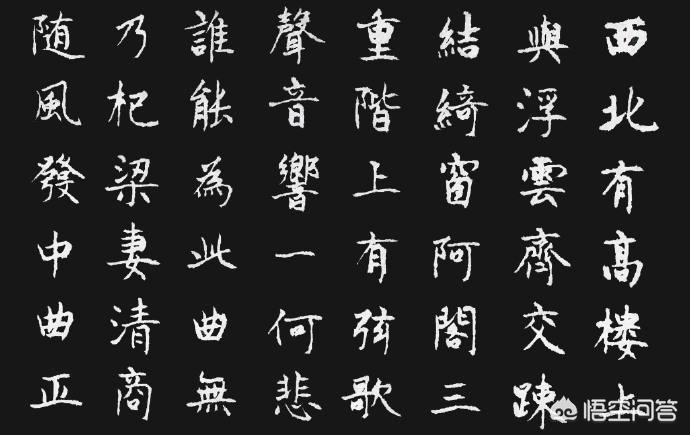 西北有高樓上
與浮雲齊交踈
結綺窗阿閣三
重階上有弦歌
聲音響一何悲
誰能為此曲無
乃杞梁妻清商
随風發中曲正
悟空问答